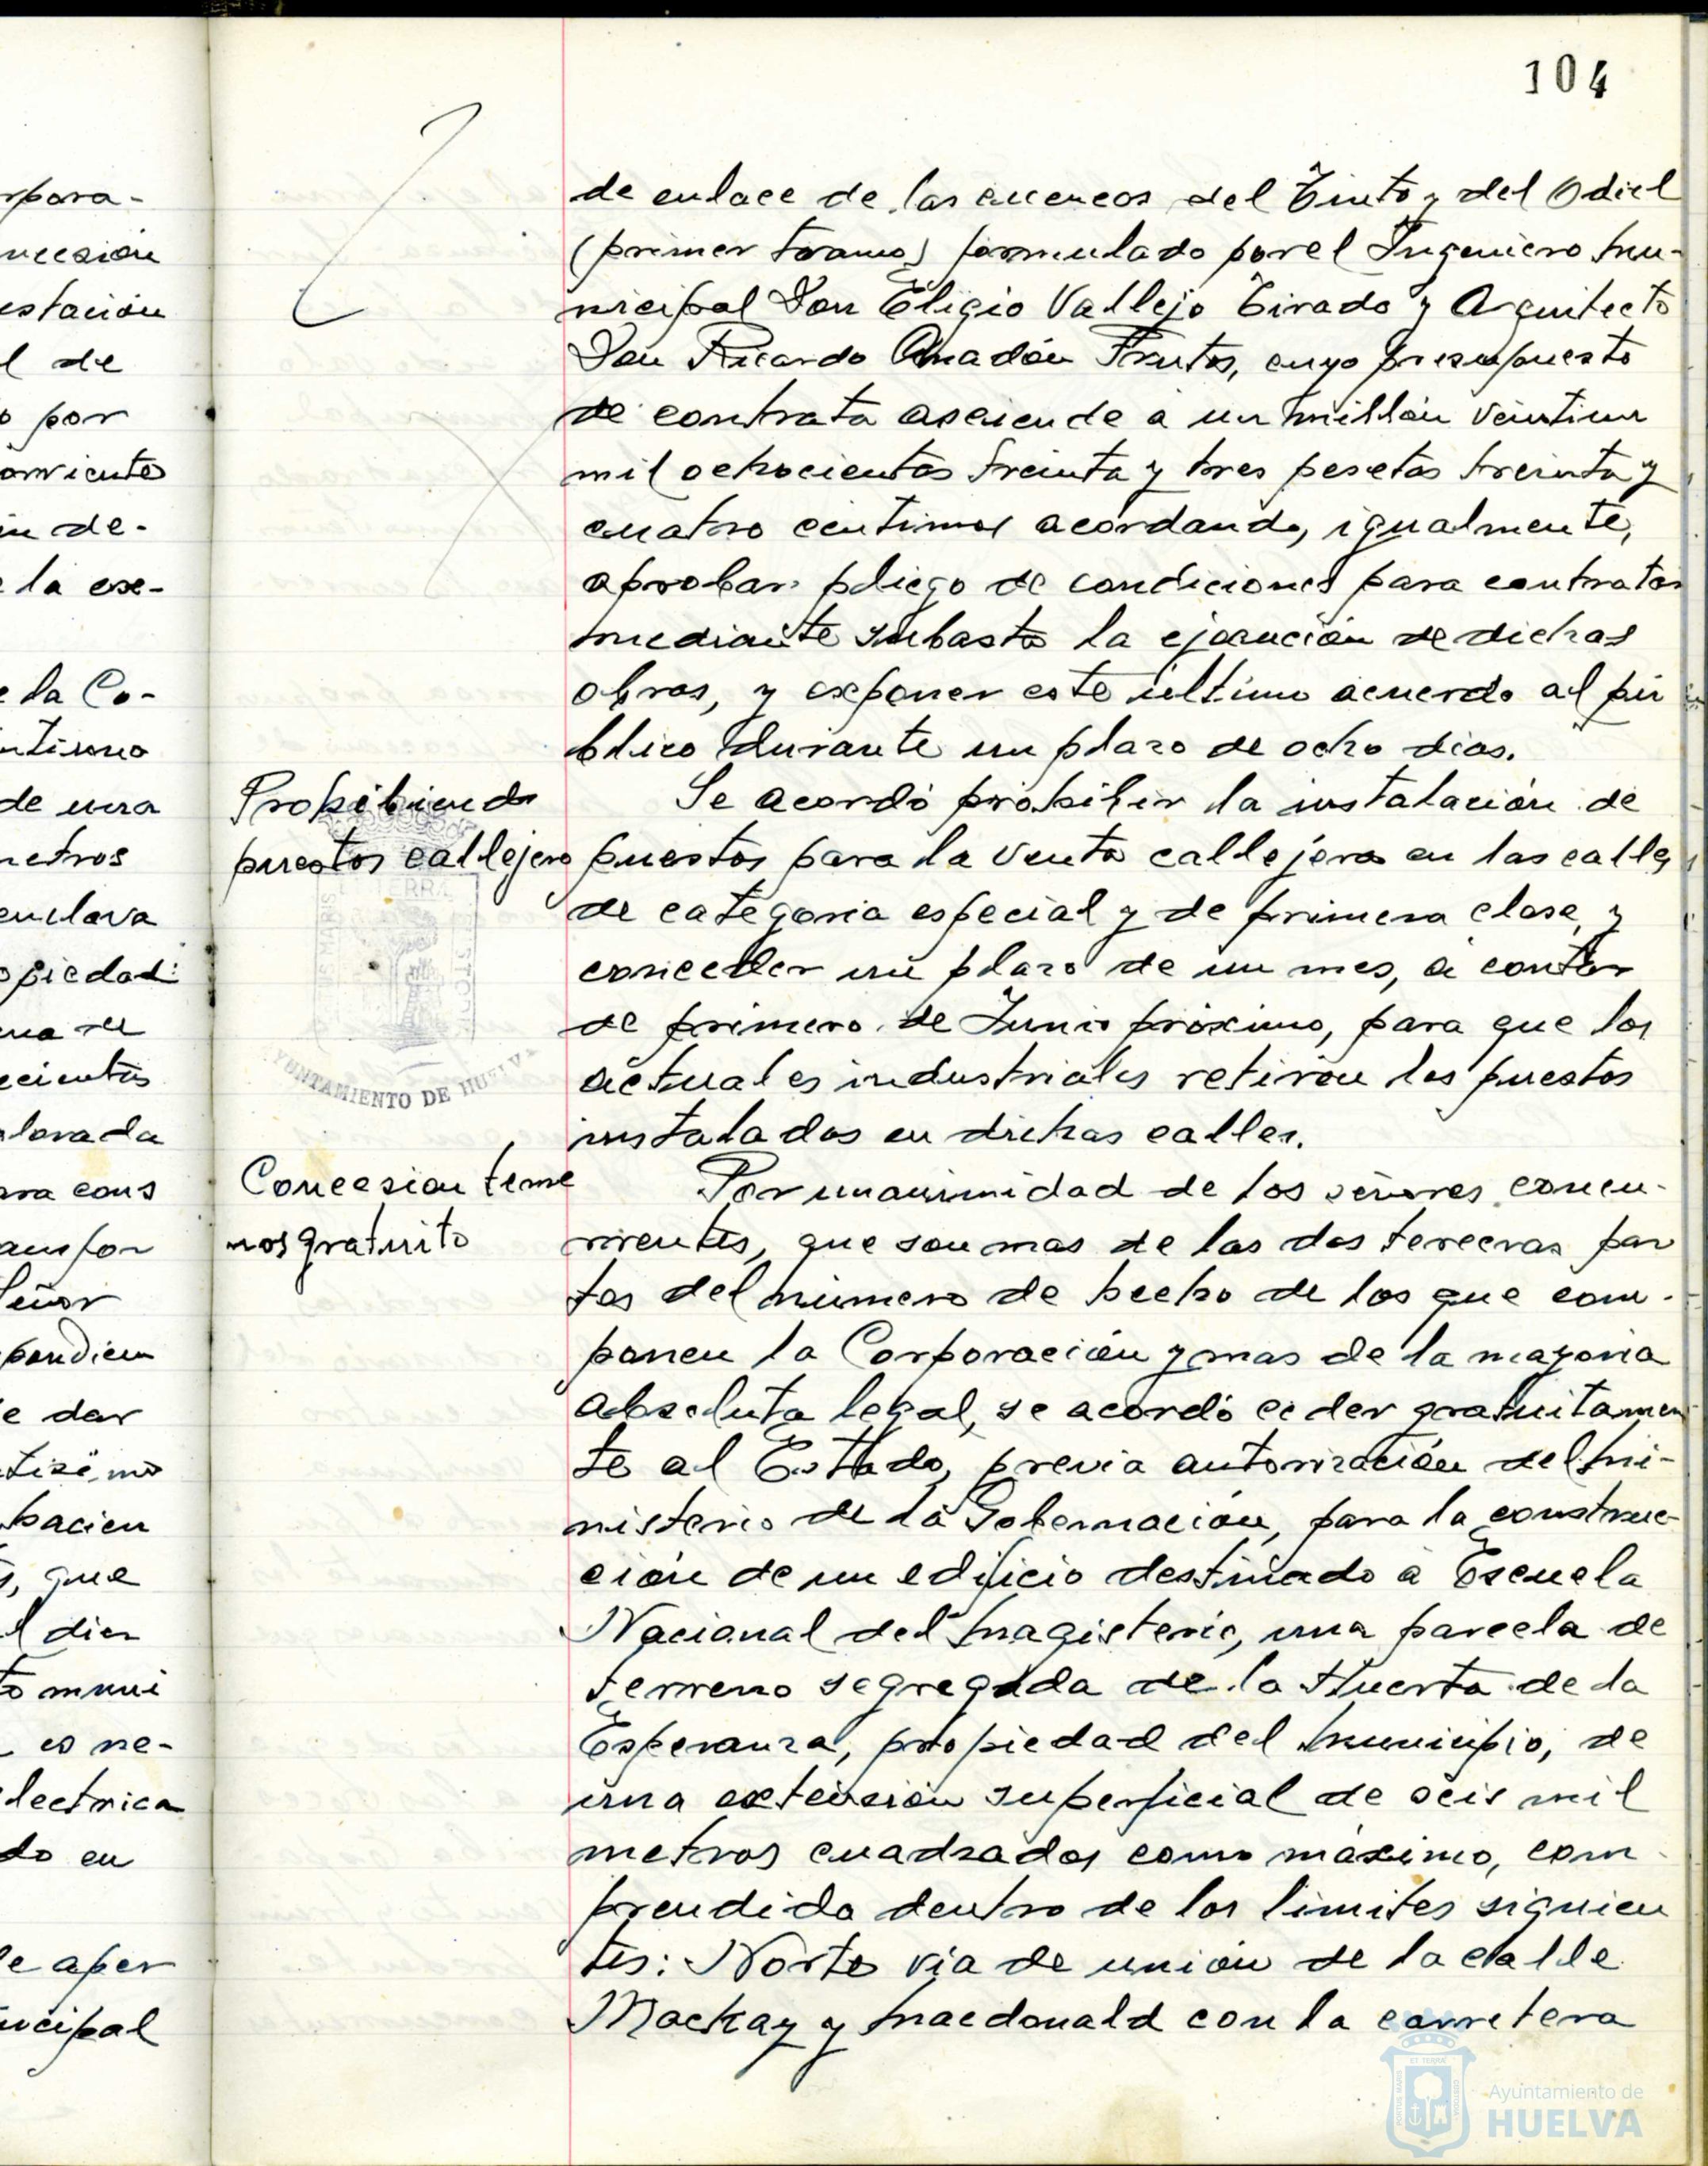 104
de enlace de las cuencas del Tinto y del Odiel
(primer tramo) formulado por el Ingeniero Mu-
nicipal Don Eligio Vallejo Tirado y Arquitecto
Don Ricardo Anadón Frutos, cuyo presupuesto
de contrata asciende a un millón veintiun
mil ochocientas treinta y tres pesetas treinta y
cuatro centimos acordando, igualmente,
aprobar pliego de condiciones para contratar
mediante subasta la ejecución de dichas
obras, y exponer este último acuerdo al pú
blico durante un plazo de ocho dias.
Prohibiendo
puestos callejero
Se acordó prohibir la instalación de
puestos para la venta callejera en las calles
de categoria especial y de primera clase, y
conceder un plazo de un mes, a contar
de primero de Junio próximo, para que los
actuales industriales retiren los puestos
instalados en dichas calles.
Concesion terre
nos gratuito
Por unanimidad de los señores concu-
rrentes, que son mas de las dos terceras par
tes del número de hecho de los que com-
ponen la Corporación y mas de la mayoria
absoluta legal, se acordó ceder gratuitamen
te al Estado, previa autorización del Mi-
nisterio de la Gobernación, para la construc-
ción de un edificio destinado a Escuela
Nacional del Magisterio, una parcela de
terreno segregada de la Huerta de la
Esperanza, propiedad del Municipio, de
una extension superficial de seis mil
metros cuadrados como máximo, com-
prendida dentro de los limites siguien
tes: Norte via de unión de la calle
Mackay y Macdonald con la carretera
AYUNTAMIENTO DE HUELVA
rpora-
ncesión
estación
l de
o por
in de-
e la Co-
de una
metros
enclava
opiedad
alorada
ara cons
Señor
pondien
e dar
hacien
s, que
l dia
es ne-
lectrica
do en
e aper
nicipal
Ayuntamiento de
HUELVA